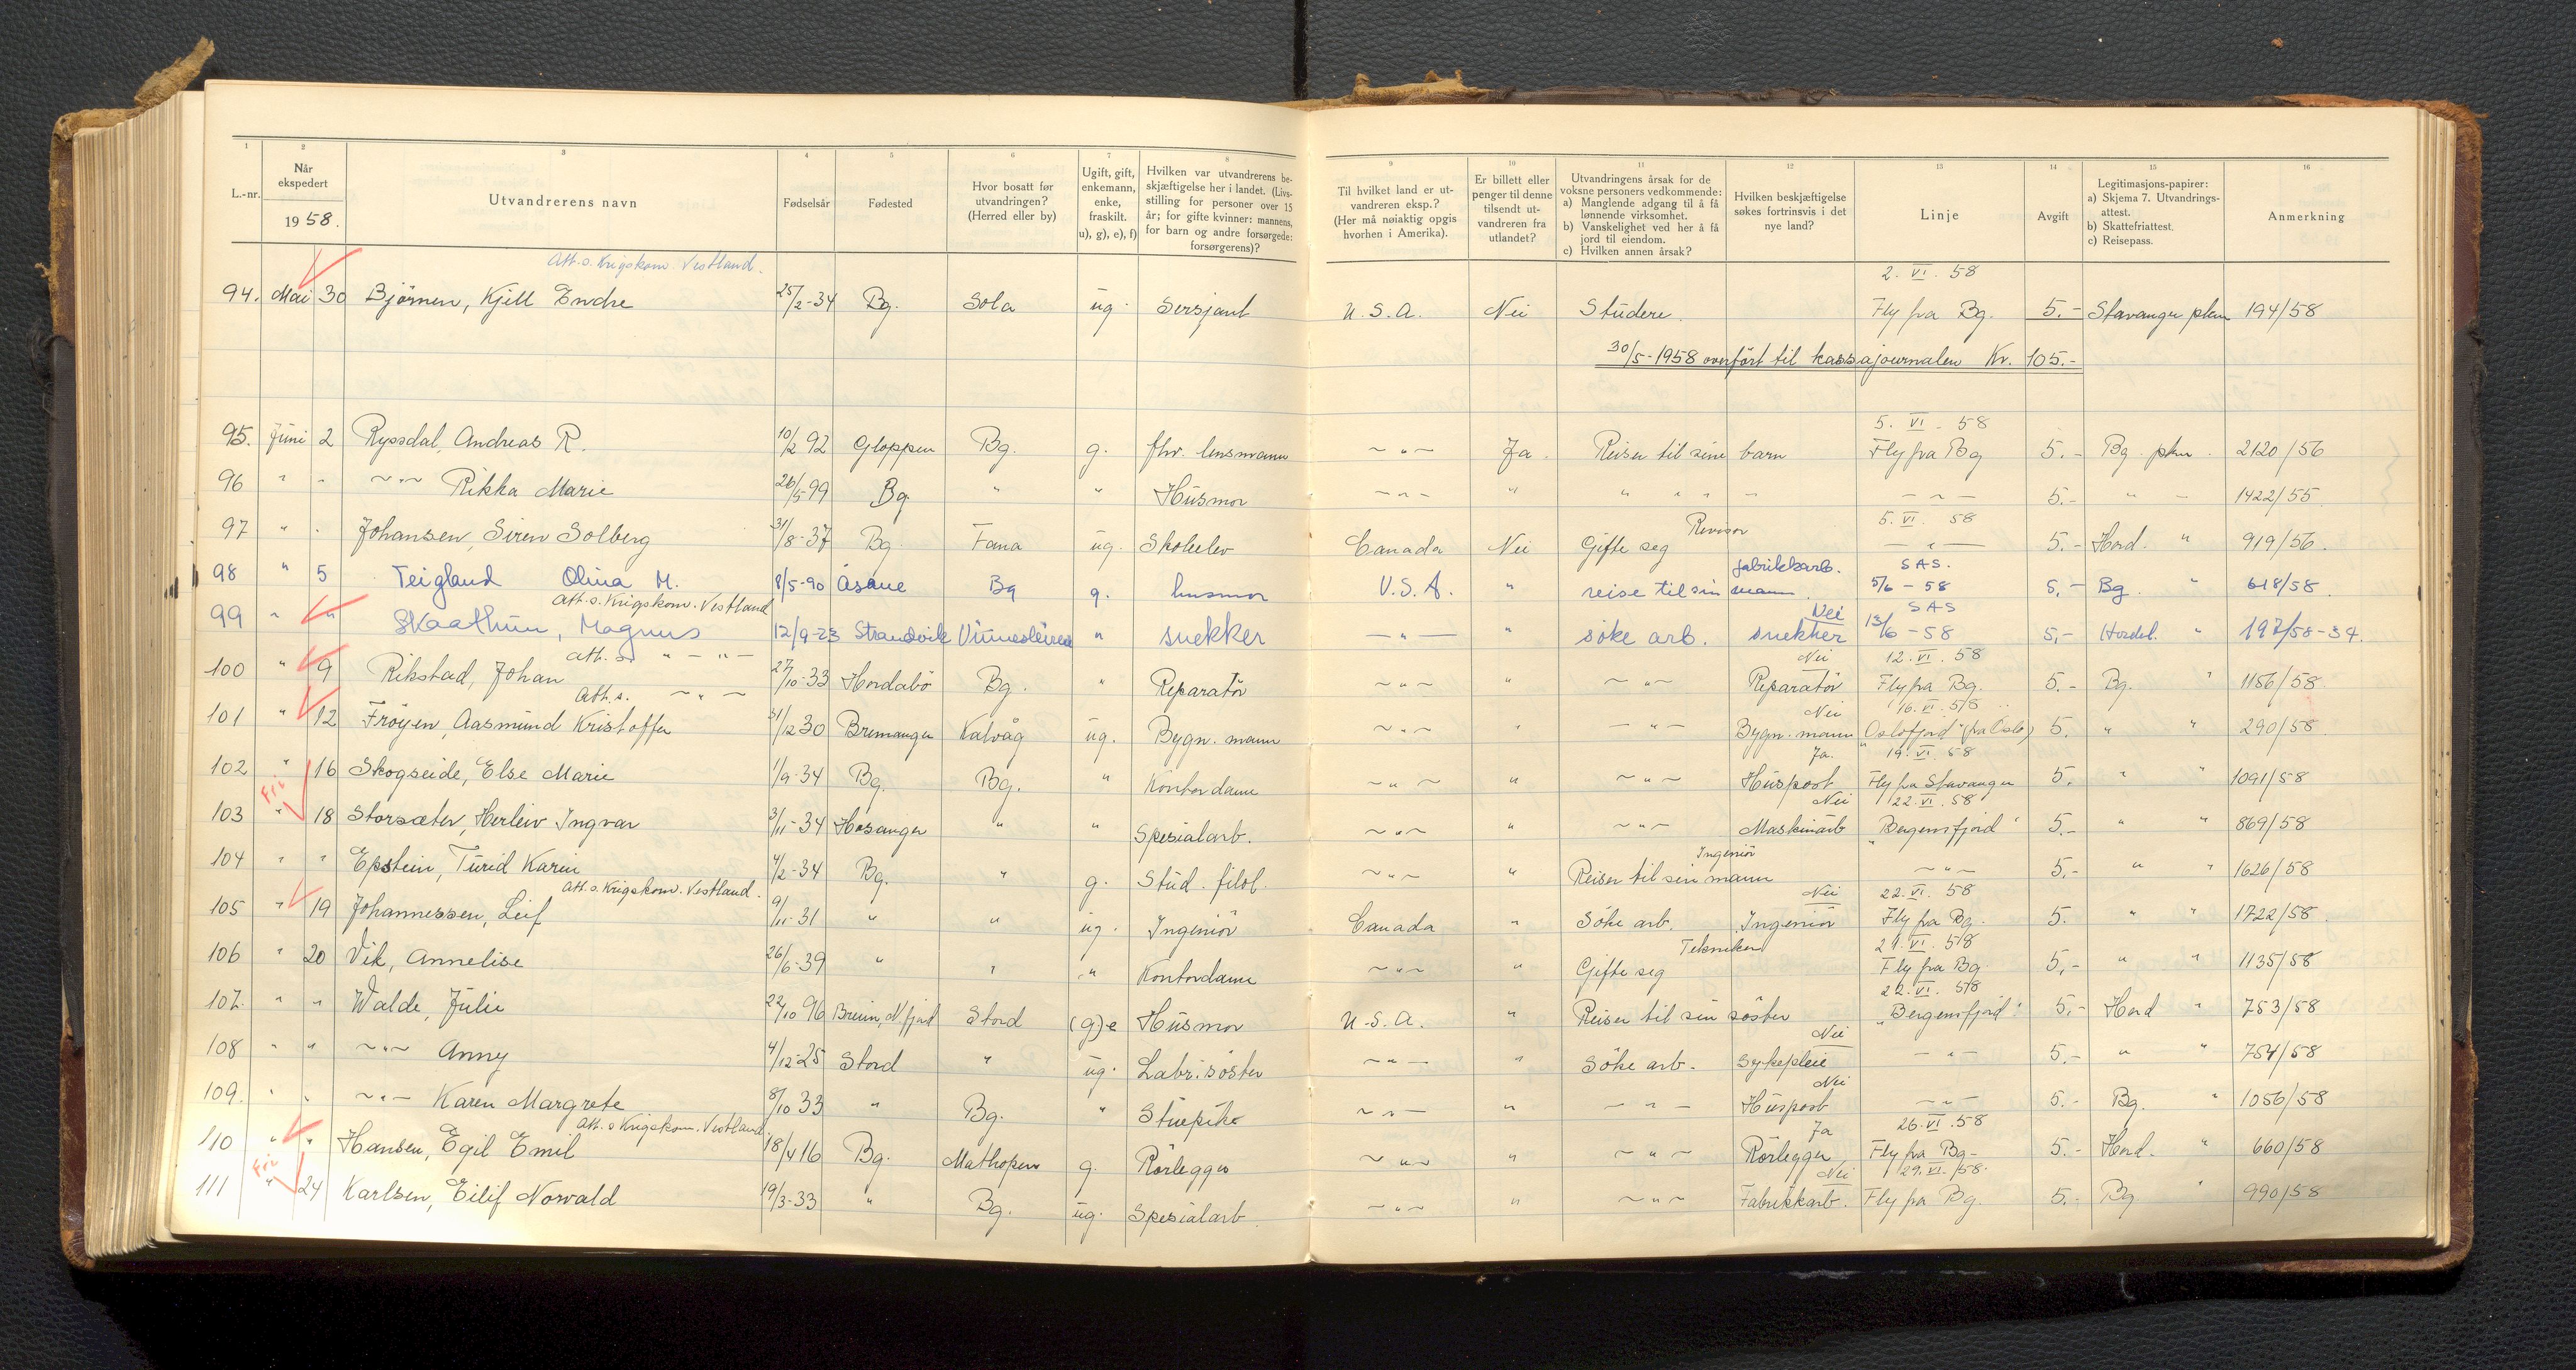 1 2 3 4 5 6 7 8 9 10 11 12 13 14 15 16
L.-nr.
Når ekspedert
1958.
Utvandrerens navn
Fødselsår
Fødested
Hvor bosatt før utvandringen? (Herred eller by)
Ugift, gift, enkemann, enke, fraskilt. u), g), e), f)
Hvilken var utvandrerens beskjæftigelse her i landet. (Livsstilling for personer over 15 år; for gifte kvinner: mannens, for barn og andre forsørgede: forsørgerens)?
Til hvilket land er utvandreren eksp.? (Her må nøiaktig opgis hvorhen i Amerika).
Er billett eller penger til denne tilsendt utvandreren fra utlandet?
Utvandringens årsak for de voksne personers vedkommende:
a) Manglende adgang til å få lønnende virksomhet.
b) Vanskelighet ved her å få jord til eiendom.
c) Hvilken annen årsak?
Hvilken beskjæftigelse søkes fortrinsvis i det nye land?
Linje
Avgift
Legitimasjons-papirer:
a) Skjema 7. Utvandringsattest.
b) Skattefriattest.
c) Reisepass.
Anmerkning
Att. s. Krigskom. Vestland. 2. VI. 58
94. Mai 30 Björnen, Kjell Endre 25/2-34 Bg. Sola ug. Sersjant U.S.A. Nei Studere. Fly fra Bg. 5.- Stavanger pkm 194/58
30/5-1958 overfört til kassajournalen Kr. 105.-
5. VI. 58
95. Juni 2 Ryssdal, Andreas R. 10/2 92 Gloppen Bg. g. fhv. lensmann ~"~ Ja Reiser til sine barn Fly fra Bg 5.- Bg. pkm. 2120/56
96 " " ~"~ Rikka Marie 26/5-99 Bg. " " Husmor ~"~ " " " " " ~"~ 5.- " 1422/55
Revisor 5. VI. 58
97 " " Johansen, Siren Solberg 31/8-37 Bg. Fana ug. Skoleelev Canada Nei Gifte seg —"— 5.- Hord. " 919/56.
fabrikkarb. SAS.
98 " 5 Teigland Olina M. 8/5-90 Åsane Bg g. husmor U.S.A. " reise til sin mann. 5/6-58 5,- Bg. " 618/58.
Att. s. Krigskom. Vestland Nei SAS
99 " " Skaathun, Magnus 12/9-23 Strandvik " snekker —"— " söke arb. snekker 13/6-58 5,- Hordal. " 197/58-34.
att. s. "—"— Nei 12. VI. 58
100 " 9 Rikstad, Johan 27/10-33 Hordabö Bg. " Reparatör ~"~ " ~"~ Reparatör Fly fra Bg. 5.- Bg. " 1156/58
Att. s. ~"~ Nei 16. VI. 58
101 " 12 Fröyen, Aasmund Kristoffer 31/12 30 Bremanger Kalvåg ug. Bygn. mann ~"~ " —"— Bygn. mann "Oslofjord" (fra Oslo) 5. " " 290/58
Ja. 19. VI. 58
102 " 16 Skogseide, Else Marie 1/9-34 Bg. Bg. " Kontordame ~"~ " ~"~ Huspost Fly fra Stavanger 5. " " 1091/58
Fri Nei 22. VI. 58
103 " 18 Storsæter, Herleiv Ingvar 3/11-34 Hosanger " " Spesialarb. ~"~ " ~"~ Maskinarb "Bergensfjord" 5.- " " 869/58
Ingeniör
104 " " Epstein, Turid Karin 4/2-34 Bg. " g. Stud. filol. ~"~ " Reiser til sin mann ~"~ 5,- " " 1626/58
Att. s. Krigskom. Vestland. Nei 22. VI. 58
105 " 19 Johannessen, Leif 9/11-31 " " ug. Ingeniör Canada " Söke arb. Ingeniör Fly fra Bg. 5. " " 1722/58.
Tekniker 29. VI. 58
106 " 20 Vik, Annelise 26/6-39 " " " Kontordame ~"~ " Gifte seg Fly fra Bg. 5,- " " 1135/58
22. VI. 58
107. " " Walde, Julie 22/10 96 Breim, N.fjord Stord (g)e Husmor U.S.A. " Reiser til sin söster "Bergensfjord" 5,- Hord " 753/58
Nei
108 " " ~"~ Anny 4/12-25 Stord " ug. Labr. söster ~"~ " Söke arb. Sykepleie —"— 5.- " " 754/58
Nei
109. " " ~"— Karen Margrete 8/10 33 " Bg. " Stuepike ~"— " —"— Huspost ~"~ 5.- Bg. " 1056/58
Att. s Krigskom. Vestland. Ja 26. VI. 58
110 " " Hansen, Egil Emil 18/4 16 Bg. Mathopen g. Rörlegger ~"~ " ~"~ Rörlegger Fly fra Bg- 5.- Hord. " 660/58
Fri Nei 29. VI. 58.
111 " 24 Karlsen, Eilif Norvald 19/3-33 " Bg. ug. Spesialarb. ~"~ " ~"~ Fabrikkarb. Fly fra Bg. 5.- Bg " 990/58